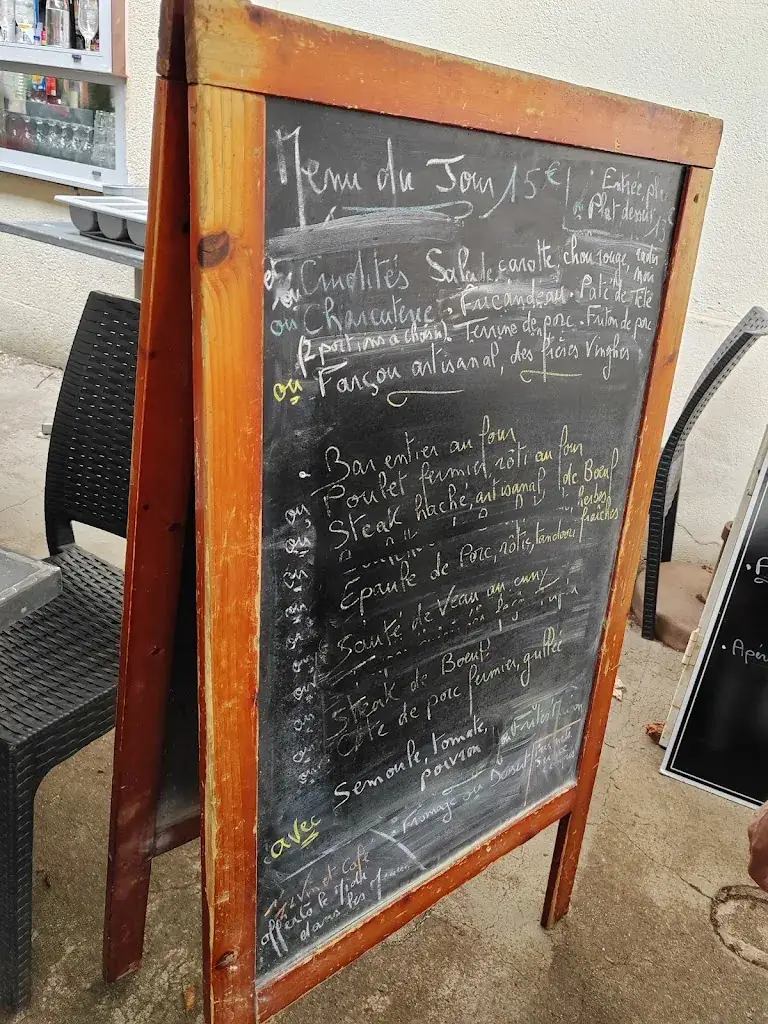 Menu du Jour 15€
Entrée pl
Plat dessert 13€
Crudités Salade, carotte, chou rouge, radis
ou Charcuterie. Fricandeau. Paté de Tête
(2 portions à choisir) Terrine de porc. Friton de porc
ou Farçou artisanal, des frères Vinghes
. Bar entier au four
ou Poulet fermier, rôti au four
ou Steak haché, artisanal, de Boeuf
herbes fraîches
ou Épaule de Porc, rôtie, tandoori
ou Sauté de Veau au curry
ou Steak de Boeuf
ou Côte de porc fermier, grillée
avec Semoule, tomate, poivron
Frites Maison
. Fromage ou Dessert
1/4 Vin et Café
offerts le Midi
dans les
. Apér